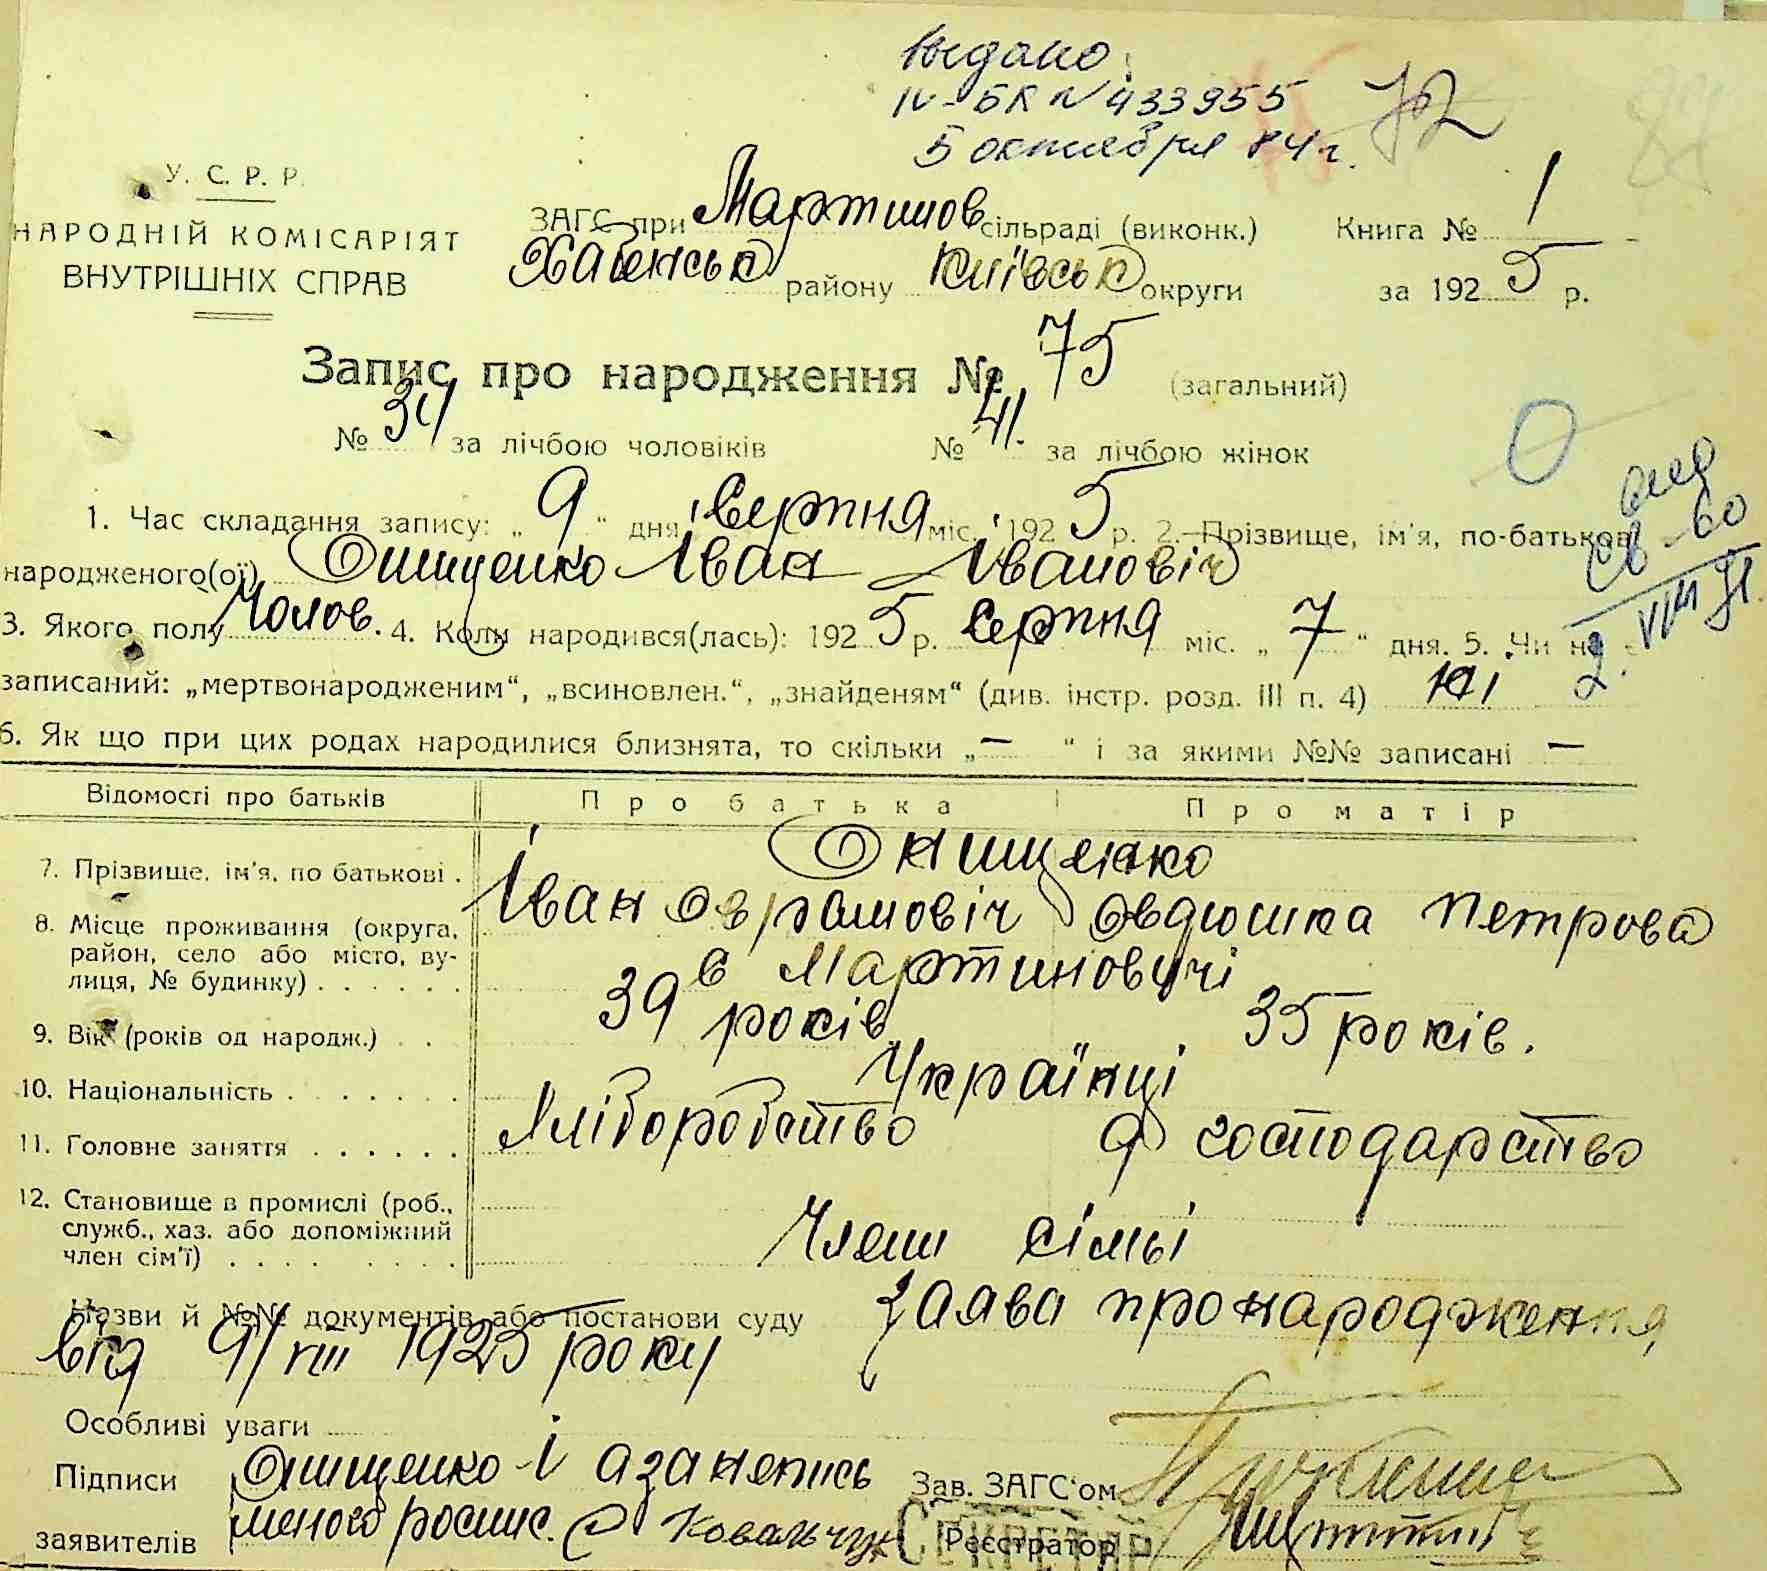 Выдано
IV-БК N 433955
5 октября 84 г.
72
У. С. Р. Р.
НАРОДНІЙ КОМІСАРІЯТ
ВНУТРІШНІХ СПРАВ
ЗАГС при Мартинов сільраді (виконк.) Книга № 1
Хабенськ району Київськ округи за 192 5 р.
Запис про народження № 75 (загальний)
№ 34 за лічбою чоловіків № 41. за лічбою жінок
1. Час складання запису: „ 9 “ дня Серпня міс. 192 5 р. 2. Прізвище, ім'я, по-батькові
народженого(ої) Онищенко Іван Івановіч
3. Якого полу Чолов. 4. Коли народився(лась): 192 5 р. Серпня міс. „ 7 “ дня. 5. Чи не є
записаний: „мертвонародженим“, „всиновлен.“, „знайденям“ (див. інстр. розд. III п. 4) ні
6. Як що при цих родах народилися близнята, то скільки „ — “ і за якими №№ записані —
Відомості про батьків Про батька Про матір
7. Прізвище, ім'я, по батькові . Онищенко
Іван Оврамовіч Овдюшка Петрова
8. Місце проживання (округа,
район, село або місто, ву-
лиця, № будинку) . . . . . . в Мартиновичі
9. Вік (років од народж.) . . 39 років 35 років.
10. Національність . . . . . . . Українці
11. Головне заняття . . . . . . Хліборобство господарство
12. Становище в промислі (роб.,
служб., хаз. або допоміжний
член сім'ї) . . . . . . . . . Член сімьі
Назви й №№ документів або постанови суду Заява про народження
від 9/VIII 1925 року
Особливі уваги
Підписи Онищенко І а за непись
заявителів меного роспис. Ковальчук
Зав. ЗАГС'ом
Реєстратор
СЕКРЕТАР